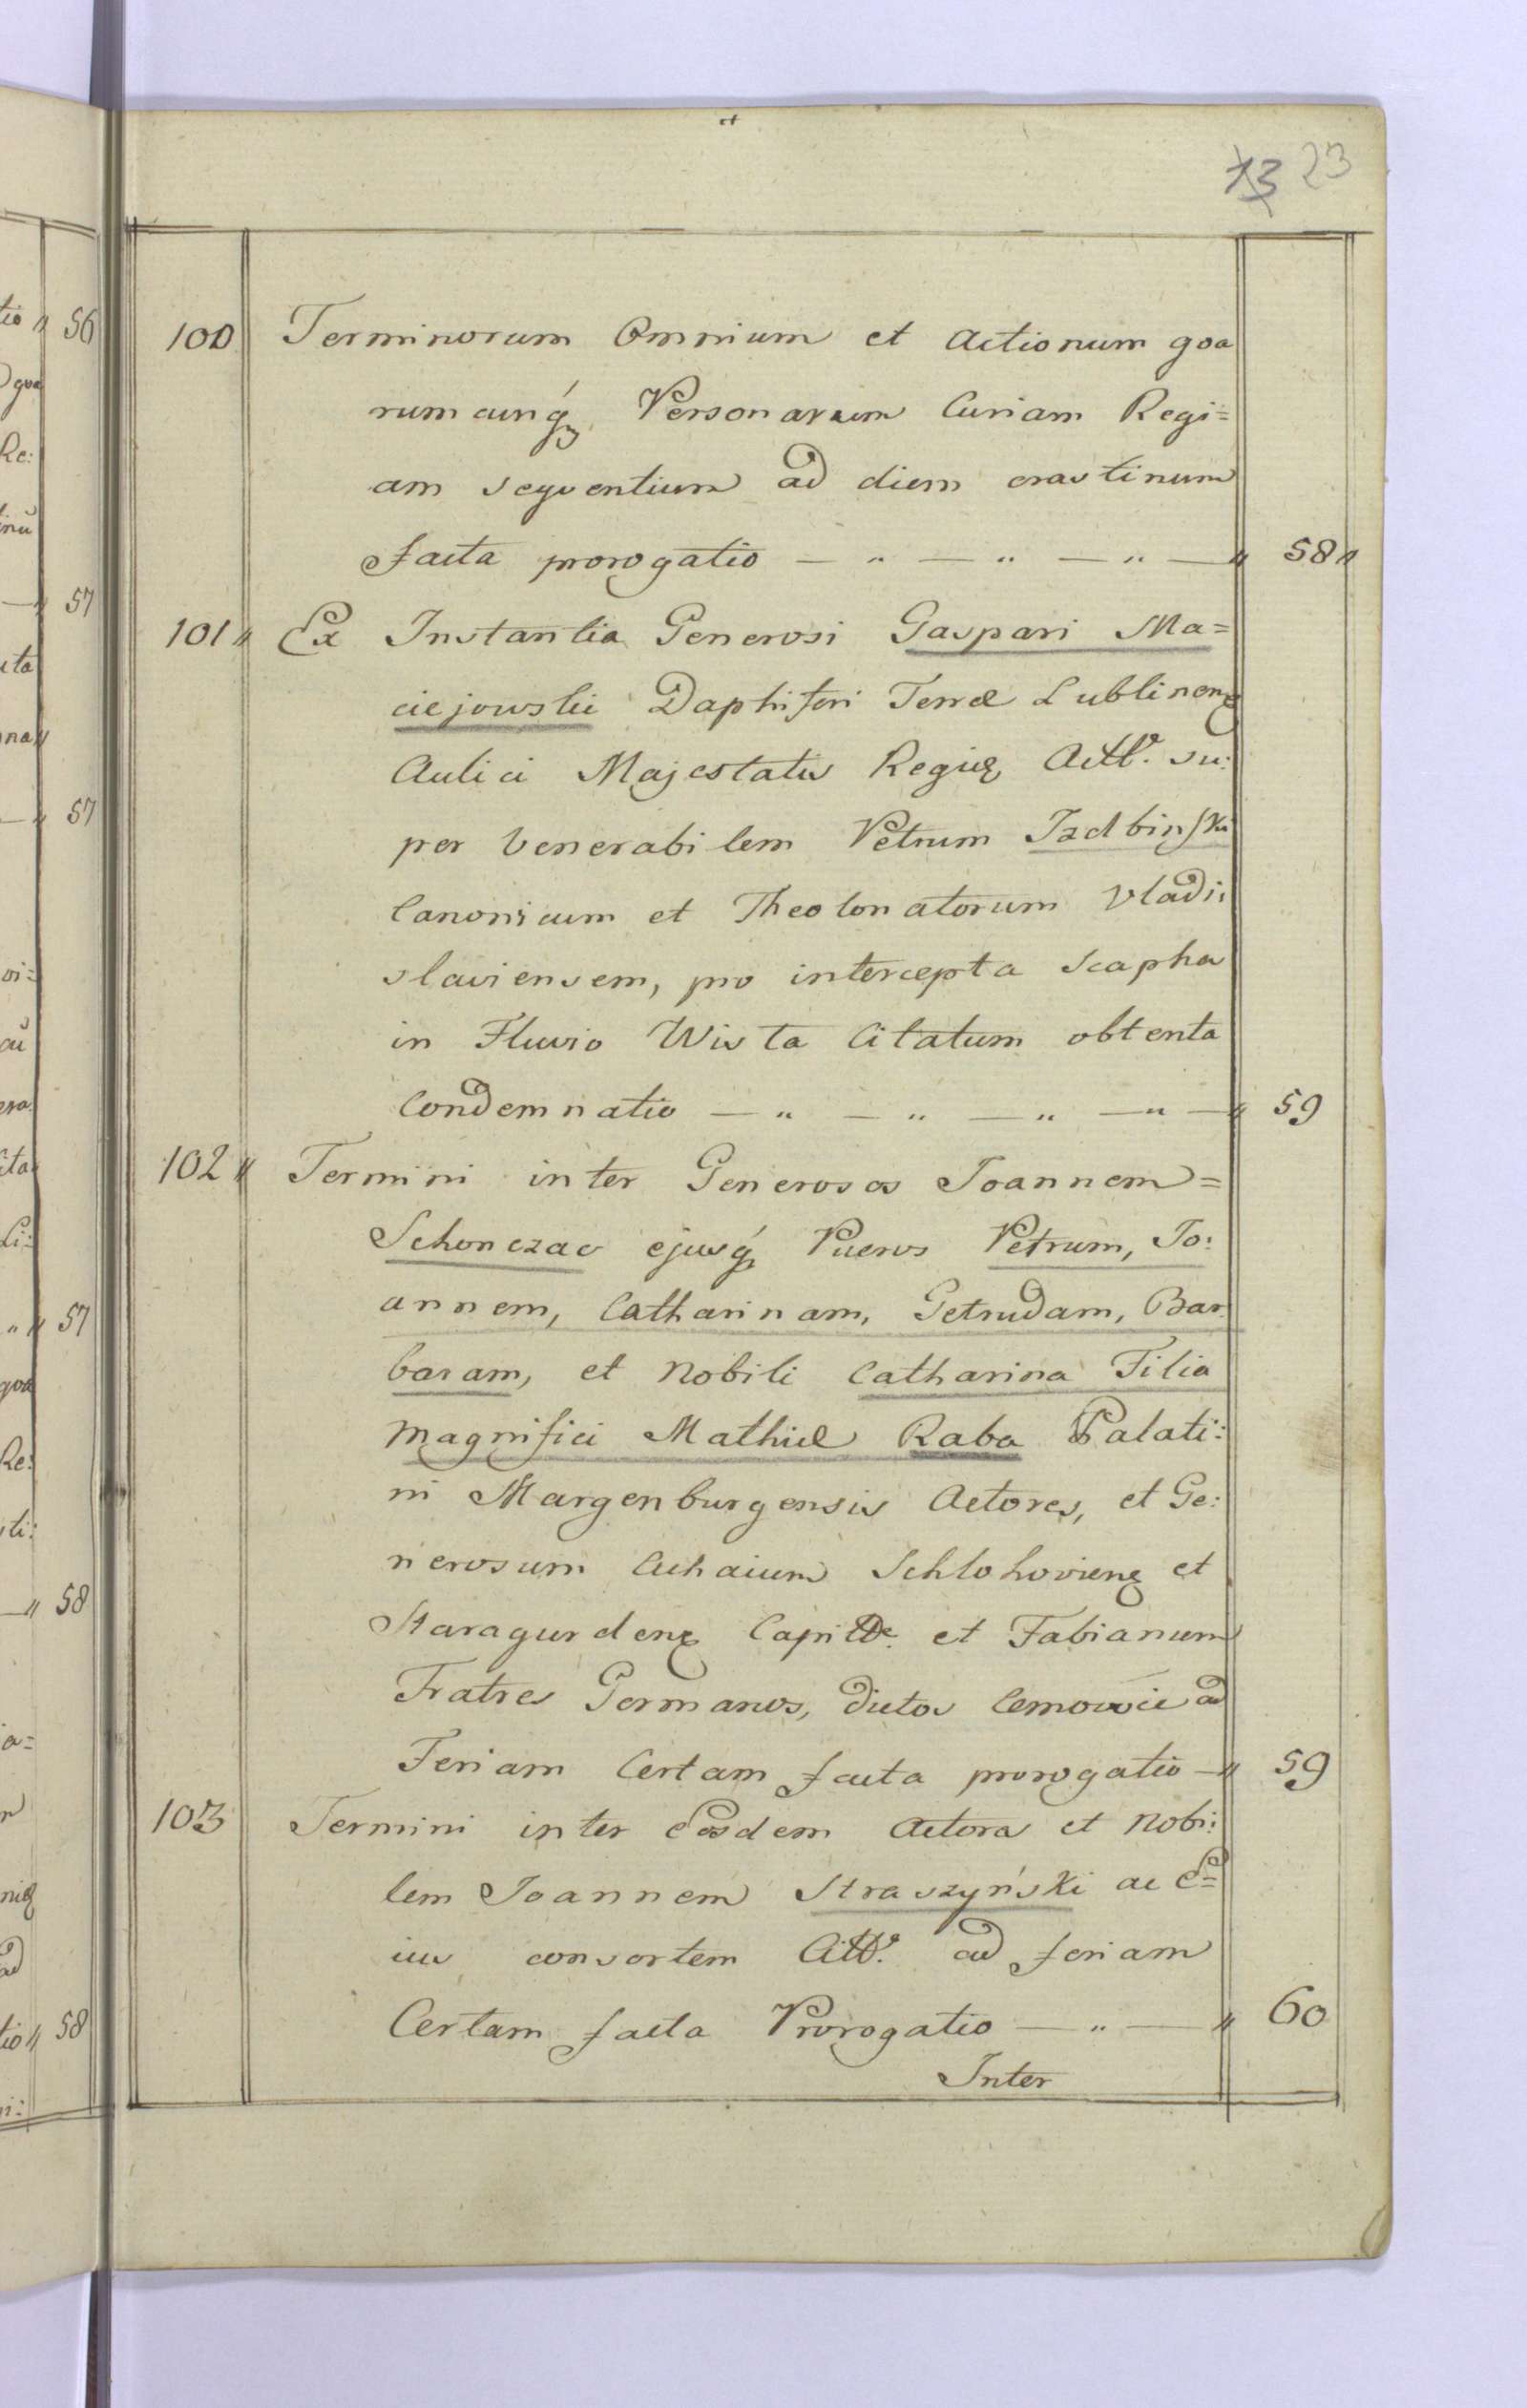 23
100 Terminorum Omnium et Actionum qoa
rumcunq Personarum Curiam Regi=
am seqventium ad diem crastinum
facta prorogatio — " — " — " — " 58 "
101 " Ex Instantia Generosi Gaspari Ma=
ciejowski Daphiferi Terræ Lublineng
Aulici Majestatis Regiæ Actt. su:
per Venerabilem Petrum Izdbinski
Canonicum et Theolonatorum Vladi:
slaviensem, pro intercepta Scapha
in Fluvio Wista Citatum obtenta
Condemnatio — " — " — " — " — " 59
102 " Termini inter Generosos Joannem=
Schonczac ejusq Pueros Petrum, Jo:
annem, Catharinam, Getrudam, Bar
baram, et Nobili Catharina Filia
Magnifici Mathiæ Raba Palati:
ni Margenburgensis Actores, et Ge:
nerosum Achacium Schlohovieng et
Staragurdeng Capitt. et Fabianum
Fratres Germanos, dictos Cemowie ad
Feriam Certam facta prorogatio — " 59
103 Termini inter Eosdem Actora et Nobi:
lem Joannem Straszyński ac E=
ius consortem Citt. ad feriam
Certam facta Prorogatio — " — " 60
Inter